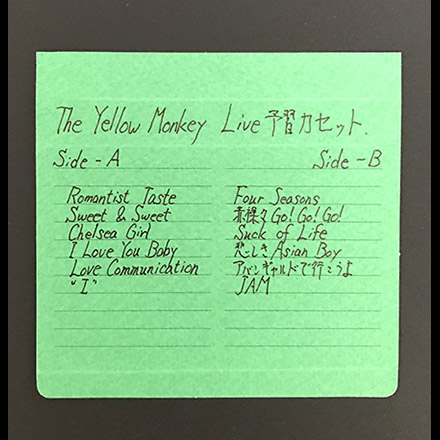 The Yellow Monkey Live 予習カセット.
Side - A
Side - B
Romantist Taste
Sweet & Sweet
Chelsea Girl
I Love You Baby
Love Communication
"I"
Four Seasons
赤裸々Go! Go! Go!
Suck of Life
悲しきAsian Boy
アバンギャルドで行こうよ
JAM